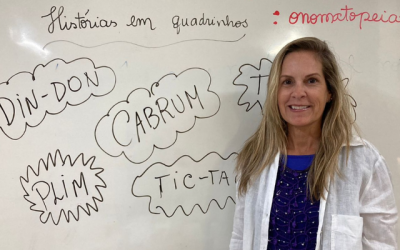 Histórias em quadrinhos
: onomatopeia
DIN-DON
CABRUM
PLIM
TIC-TA